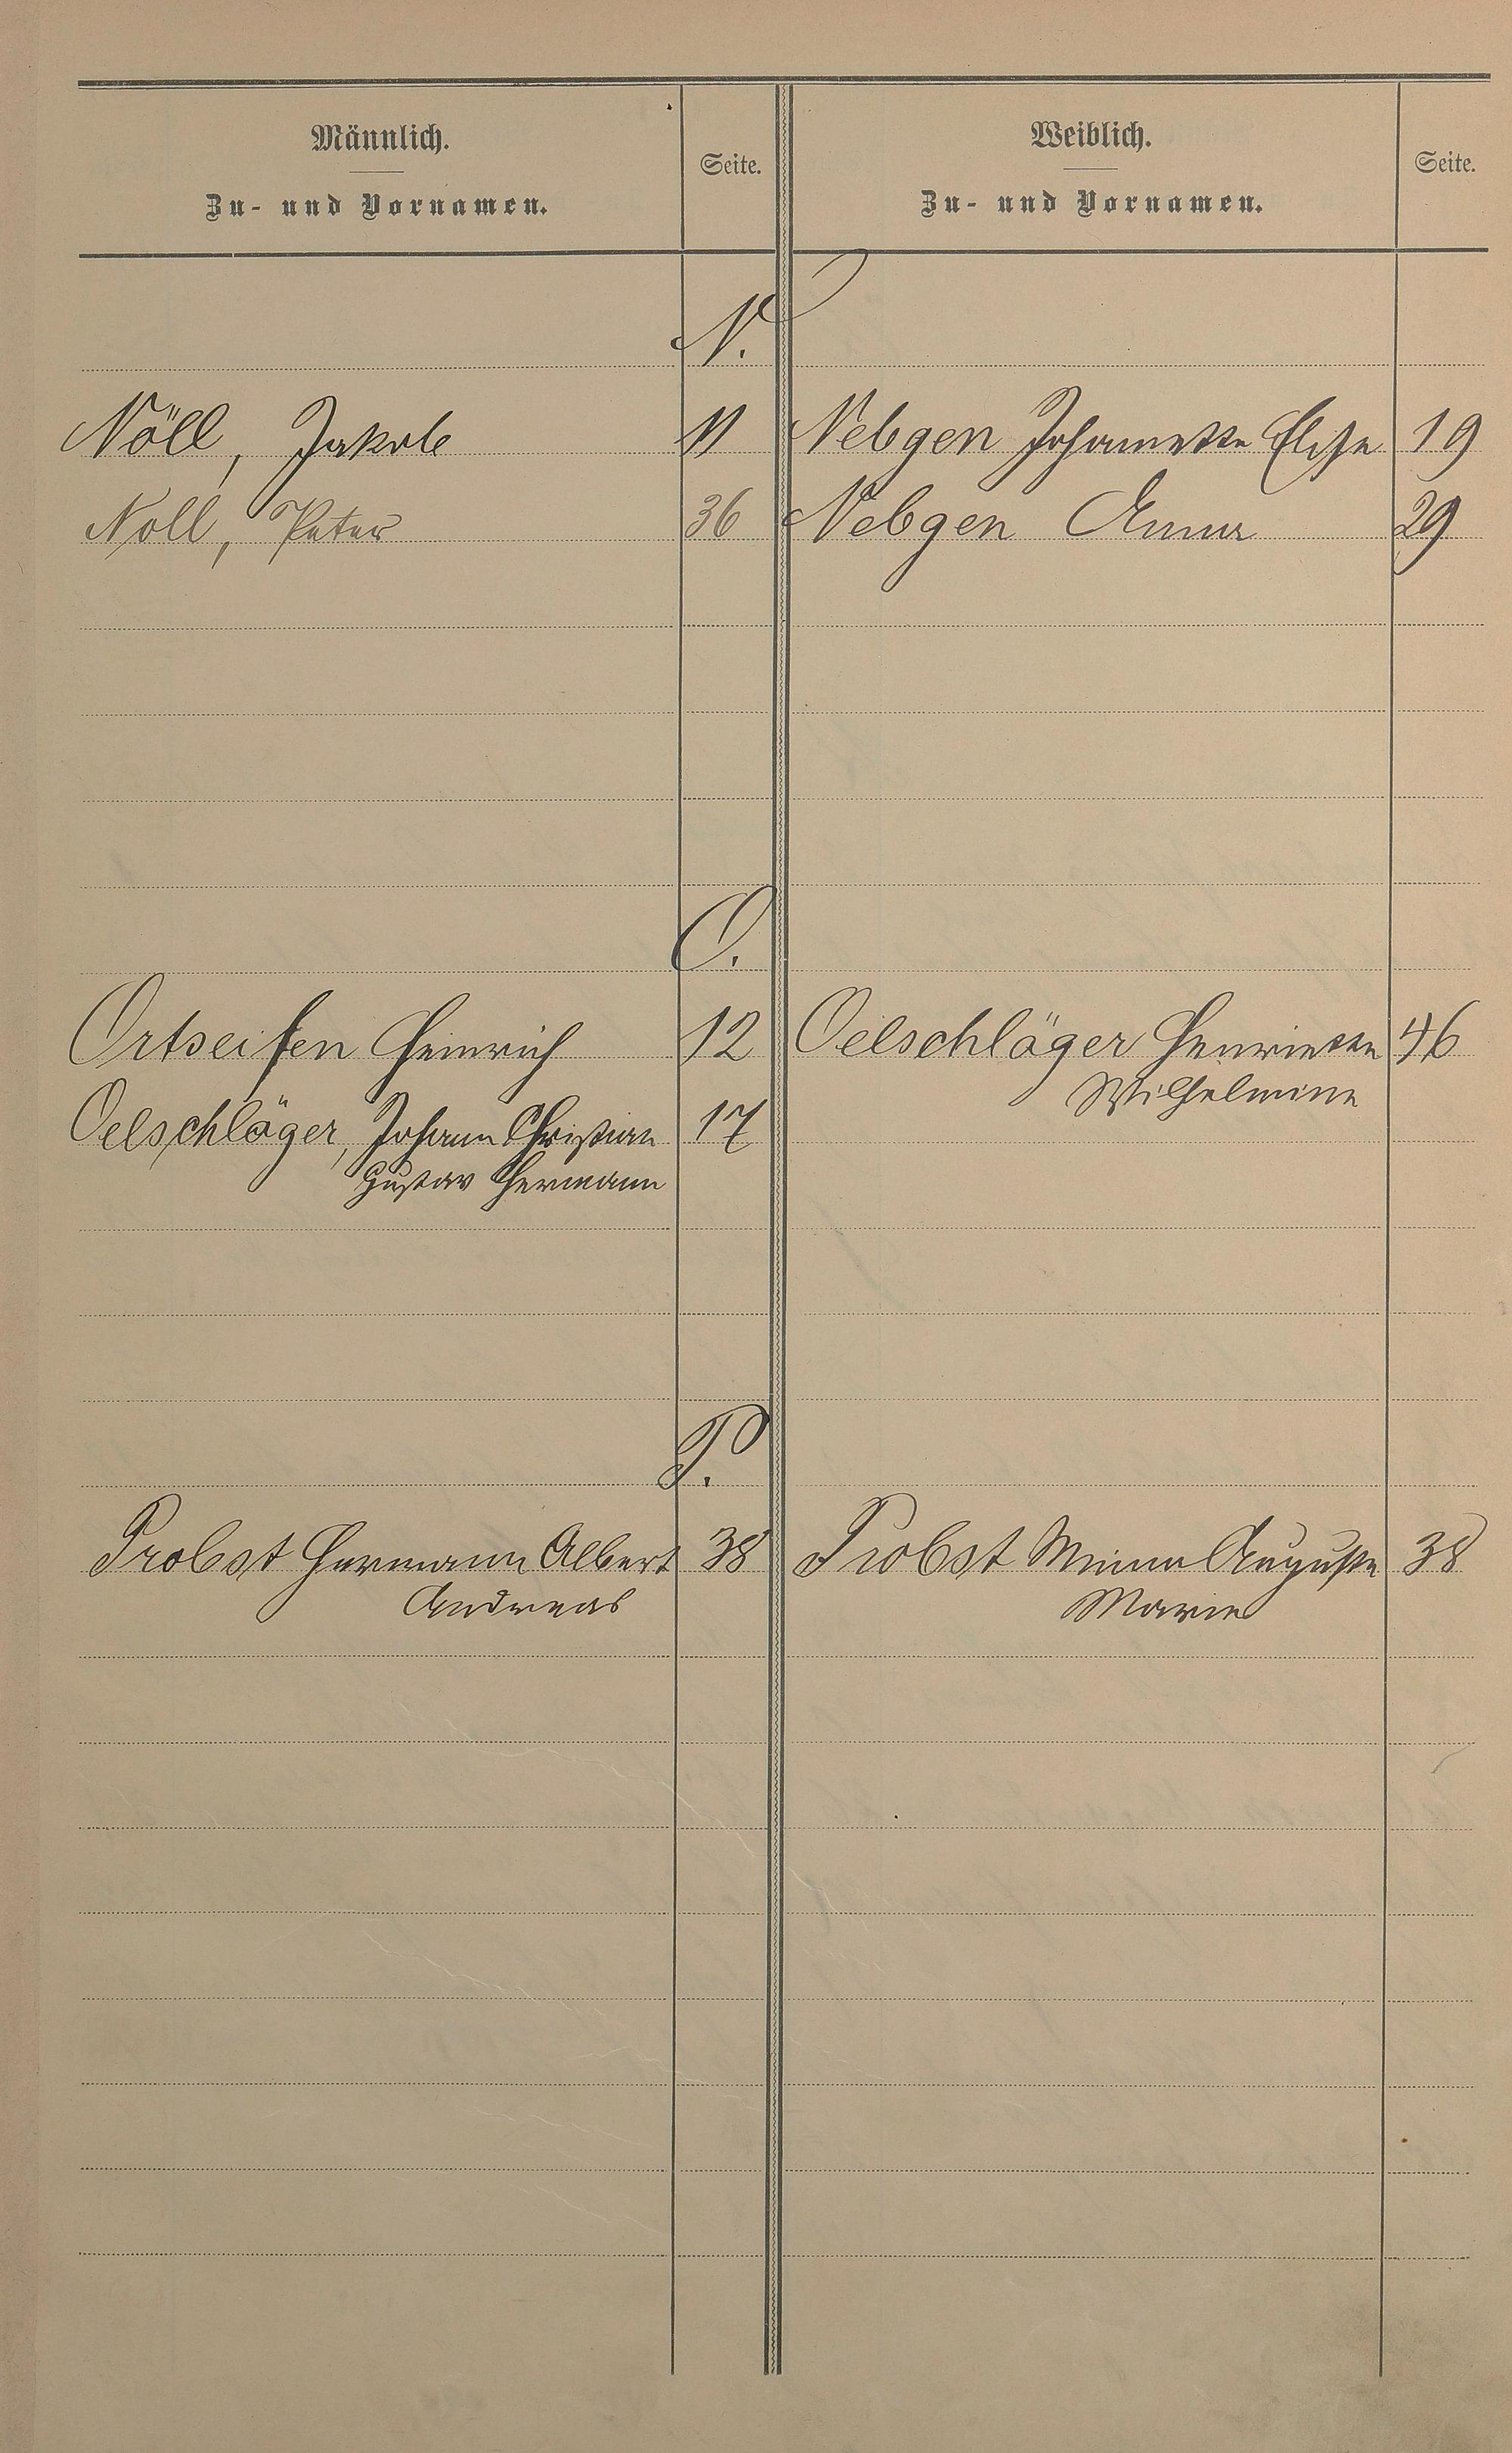 Männlich.
Zu- und Vornamen.
Seite.
Weiblich.
Zu- und Vornamen.
Seite.
N.
Nöll, Jakob 11 Nebgen Johannette Elise 19
Noll, Peter 36 Nebgen Anna 29
O.
Ortseifen Heinrich 12 Oelschläger Henriette 46
Wilhelmine
Oelschläger, Johann Christian 17
Gustav Hermann
P.
Probst Hermann Albert 38 Probst Minna Auguste 38
Andreas Marie